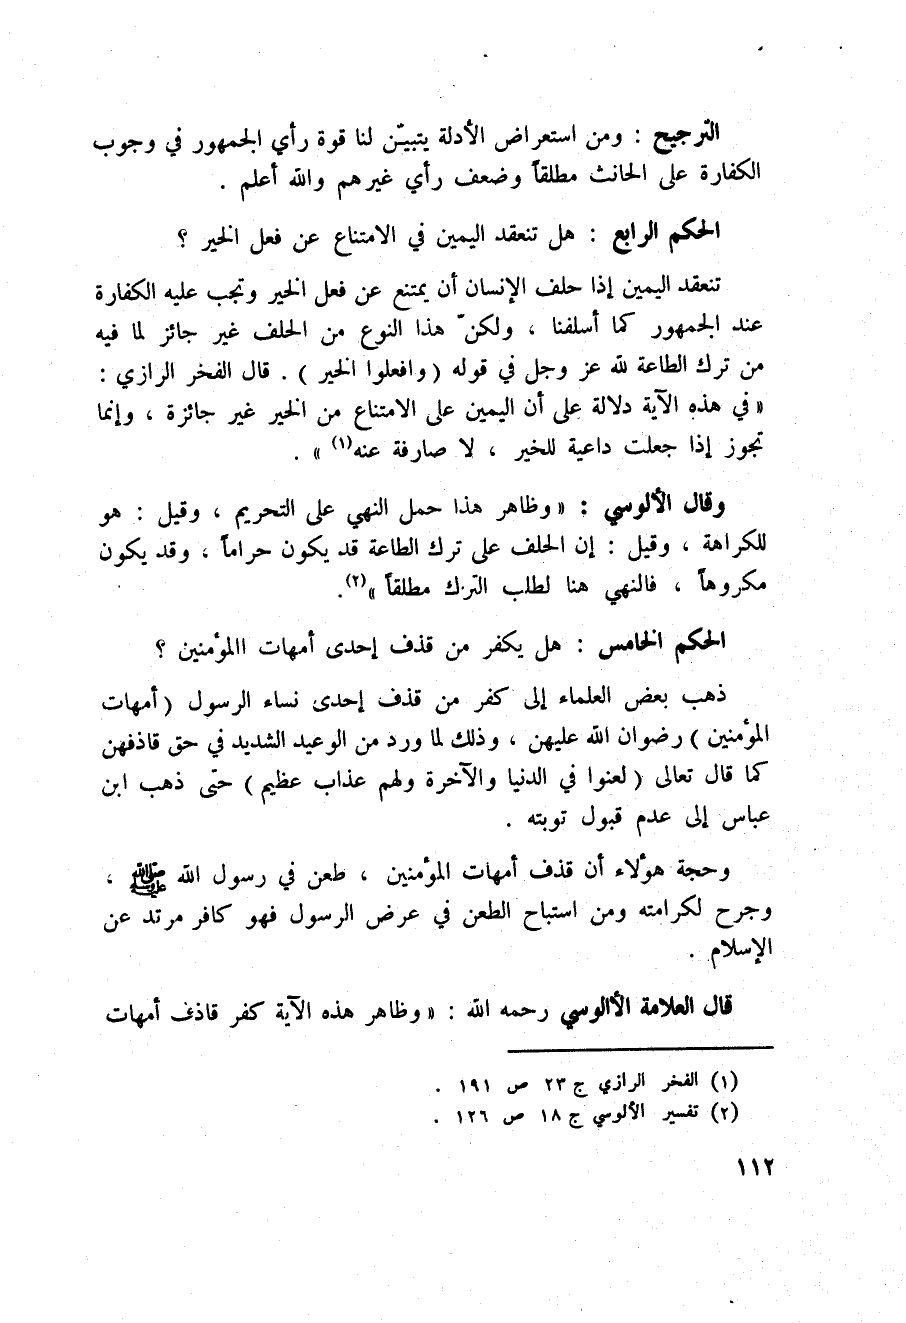 الترجيح : ومن استعراض الأدلة يتبيّن لنا قوة رأي الجمهور في وجوب
الكفارة على الحانث مطلقاً وضعف رأي غيرهم والله أعلم .
الحكم الرابع : هل تنعقد اليمين في الامتناع عن فعل الخير ؟
تنعقد اليمين إذا حلف الإنسان أن يمتنع عن فعل الخير وتجب عليه الكفارة
عند الجمهور كما أسلفنا ، ولكنّ هذا النوع من الحلف غير جائز لما فيه
من ترك الطاعة لله عز وجل في قوله ( وافعلوا الخير ) . قال الفخر الرازي :
« في هذه الآية دلالة على أن اليمين على الامتناع من الخير غير جائزة ، وإنما
تجوز إذا جعلت داعية للخير ، لا صارفة عنه(١) » .
وقال الألوسي : « وظاهر هذا حمل النهي على التحريم ، وقيل : هو
للكراهة ، وقيل : إن الحلف على ترك الطاعة قد يكون حراماً ، وقد يكون
مكروهاً ، فالنهي هنا لطلب الترك مطلقاً »(٢).
الحكم الخامس : هل يكفر من قذف إحدى أمهات االمؤمنين ؟
ذهب بعض العلماء إلى كفر من قذف إحدى نساء الرسول ( أمهات
المؤمنين ) رضوان الله عليهن ، وذلك لما ورد من الوعيد الشديد في حق قاذفهن
كما قال تعالى ( لعنوا في الدنيا والآخرة ولهم عذاب عظيم ) حتّى ذهب ابن
عباس إلى عدم قبول توبته .
وحجة هؤلاء أن قذف أمهات المؤمنين ، طعن في رسول الله ﷺ ،
وجرح لكرامته ومن استباح الطعن في عرض الرسول فهو كافر مرتد عن
الإسلام .
قال العلامة الأالوسي رحمه الله : « وظاهر هذه الآية كفر قاذف أمهات
(١) الفخر الرازي ج ٢٣ ص ١٩١ .
(٢) تفسير الألوسي ج ١٨ ص ١٢٦ .
١١٢